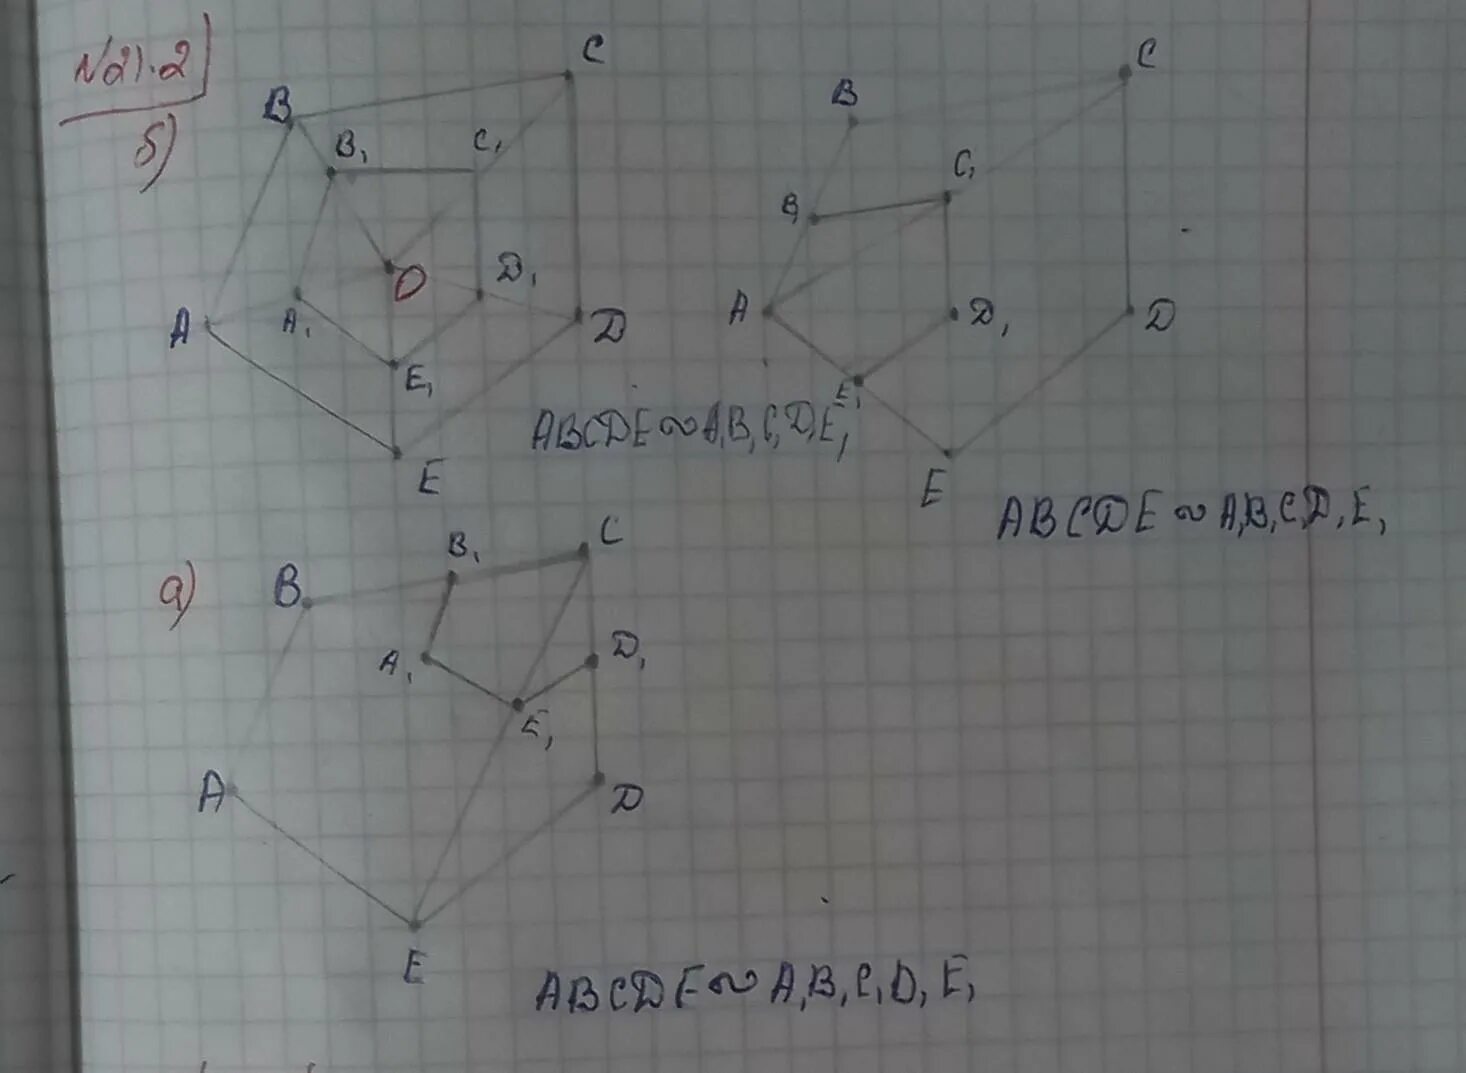 N21.2
б)
B C
B₁ C₁
O D₁
A A₁ D
E₁
E
ABCDE ∾ A₁B₁C₁D₁E₁
C
B
C₁
B₁
A D₁ D
E₁
E
ABCDE ∾ A₁B₁C₁D₁E₁
а)
B₁ C
B
A₁ D₁
E₁
A D
E
ABCDE ∾ A₁B₁C₁D₁E₁